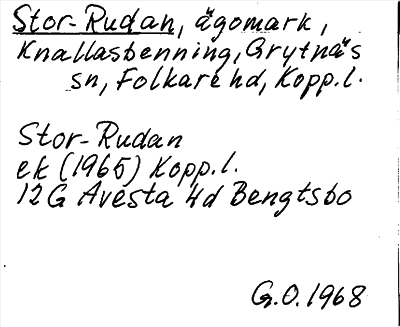 Stor-Rudan, ägomark,
Knallasbenning, Grytnäs
sn, Folkare hd, Kopp.l.
Stor-Rudan
ek (1965) Kopp.l.
12G Avesta 4d Bengtsbo
G.O.1968